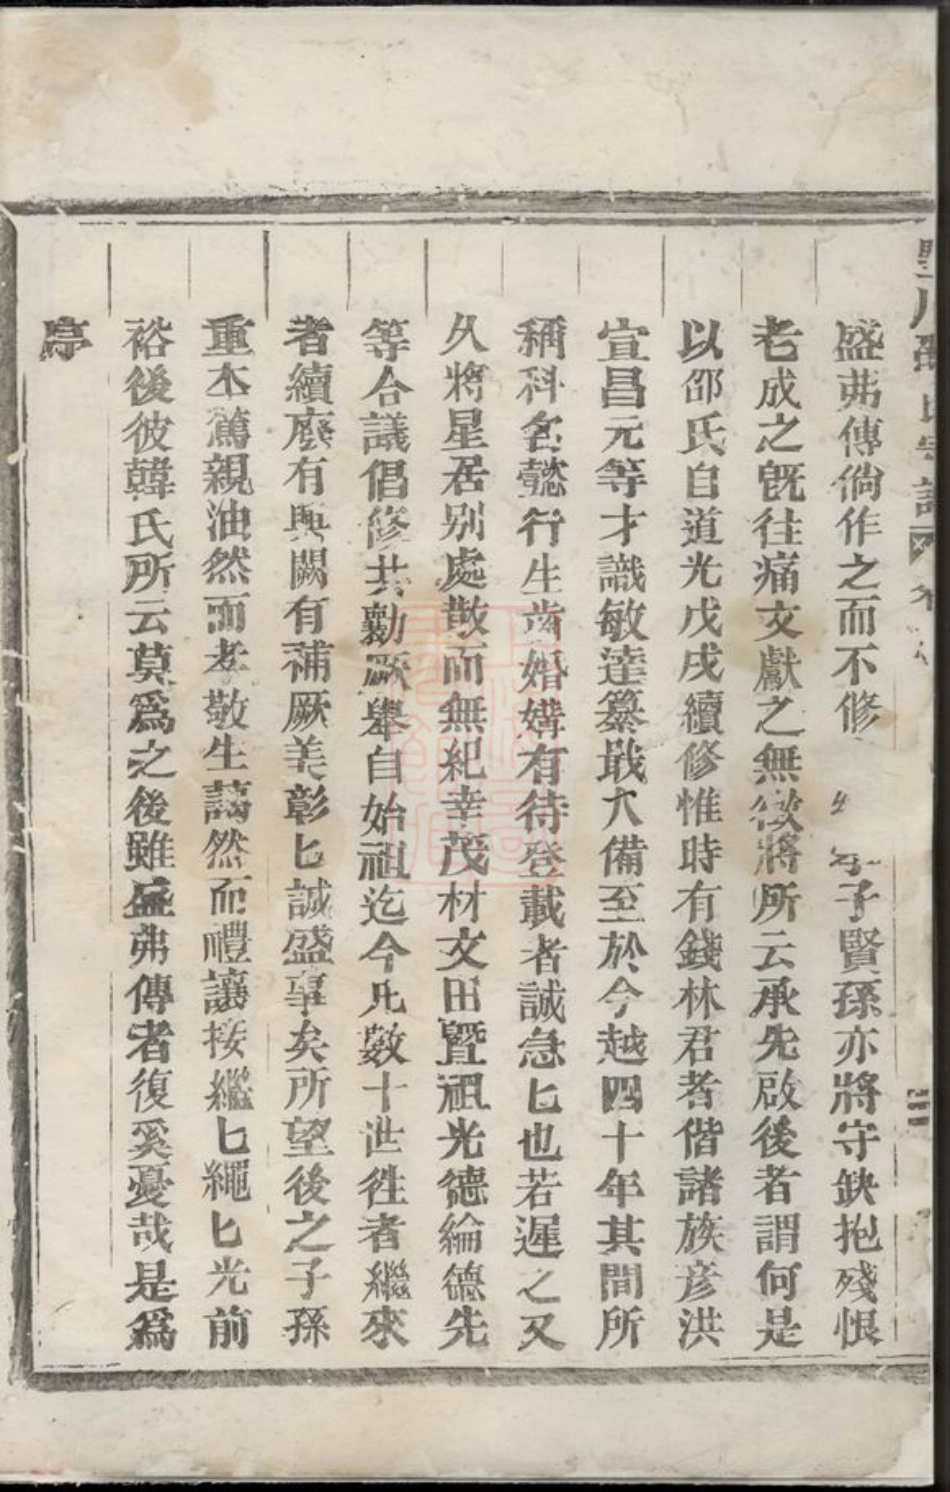 盛弗傳倘作之而不修子賢孫亦將守缺抱殘恨
老成之旣往痛文獻之無徵將所云承先啟後者謂何是
以邵氏自道光戊戌續修惟時有錢林君者偕諸族彥洪
宣昌元等才識敏達纂戢大備至於今越四十年其間所
稱科名懿行生齒婚媾有待登載者誠急匕也若遲之又
久將星居别處散而無紀幸茂材文田暨祖光德綸德先
等合議倡修共勷厥舉自始祖迄今凡數十世徃者繼來
者續廢有興闕有補厥美彰匕誠盛事矣所望後之子孫
重本篤親油然而孝敬生藹然而禮讓接繼匕繩匕光前
裕後彼韓氏所云莫爲之後雖盛弗傳者復奚憂哉是爲
序